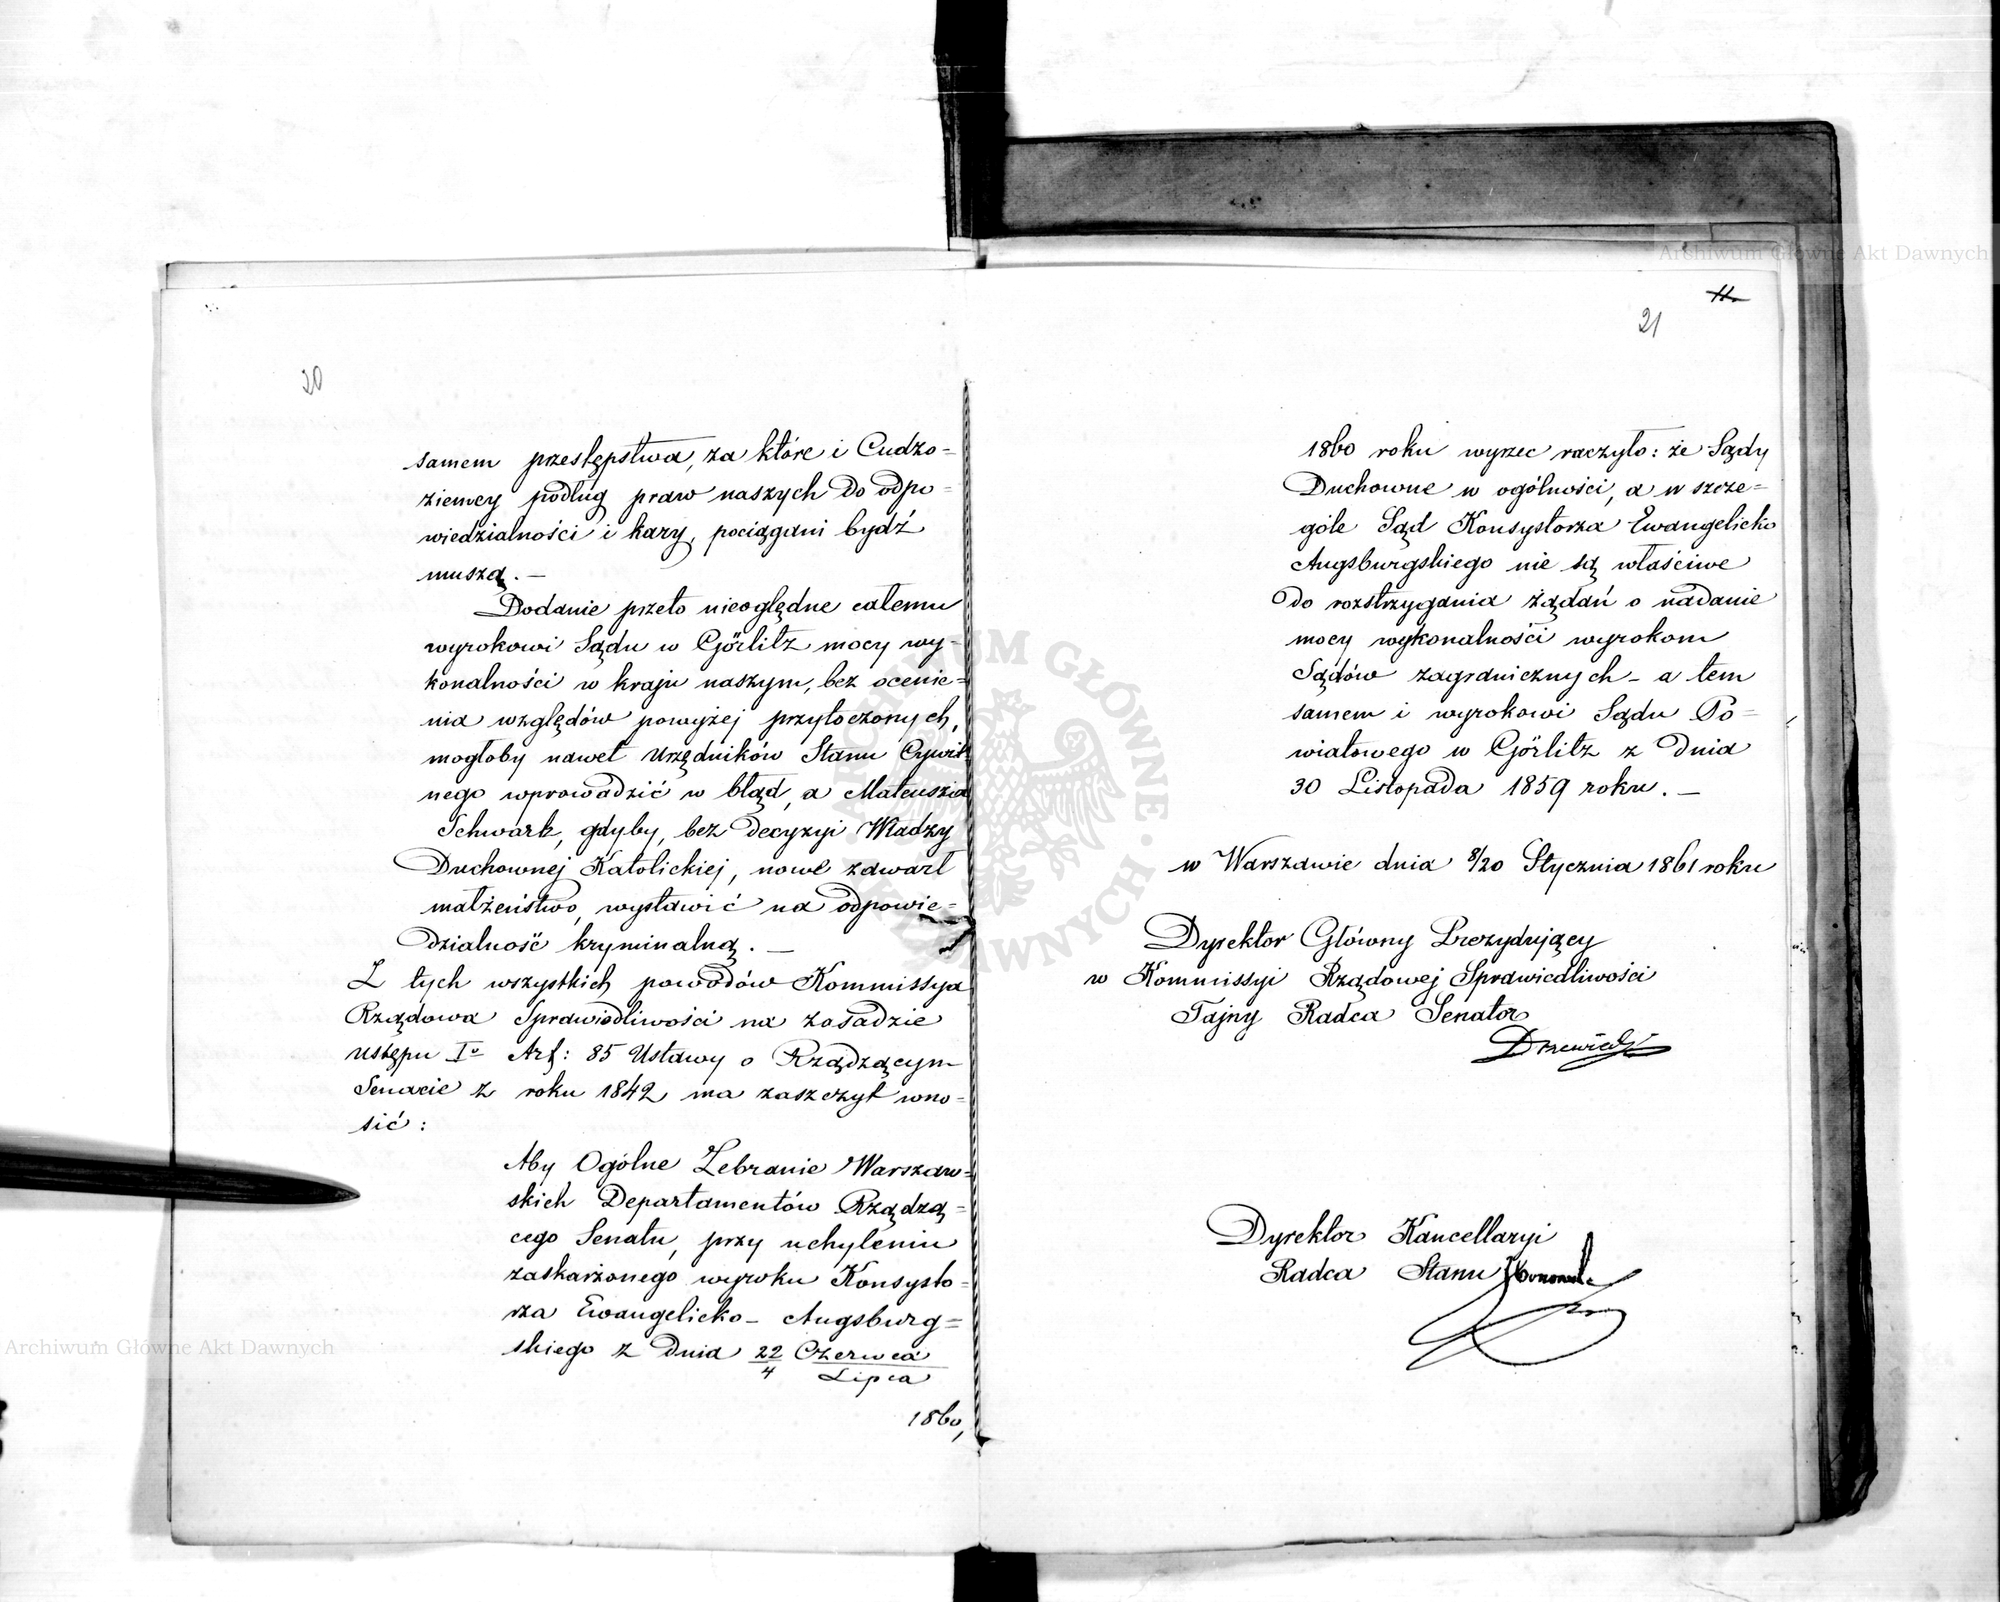 20
samem przestępstwa, za które i Cudzo=
ziemcy podług praw naszych do odpo=
wiedzialności i kary, pociągani bydź
muszą. —
Dodanie przeto nieoględne całemu
wyrokowi Sądu w Görlitz mocy wy=
konalności w kraju naszym, bez ocenie=
nia względów powyżej przytoczonych,
mogłoby nawet Urzędników Stanu Cywil=
nego wprowadzić w błąd, a Mateusza
Schwark, gdyby, bez decyzyi Władzy
Duchownej Katolickiej, nowe zawarł
małżeństwo, wystawić na odpowie=
dzialność kryminalną. —
Z tych wszystkich powodów Kommissya
Rządowa Sprawiedliwości na zasadzie
ustępu Io Art: 85 Ustawy o Rządzącym
Senacie z roku 1842 ma zaszczyt wno=
sić:
Aby Ogólne Zebranie Warszaw=
skich Departamentów Rządzą=
cego Senatu, przy uchyleniu
zaskarżonego wyroku Konsysto=
rza Ewangelicko-Augsburg=
skiego z dnia 22 Czerwca
4 Lipca
1860,
11.
21
1860 roku wyrzec raczyło: że Sądy
Duchowne w ogólności, a w szcze=
góle Sąd Konsystorza Ewangelicko
Augsburgskiego nie są właściwe
do rozstrzygania żądań o nadanie
mocy wykonalności wyrokom
Sądów zagranicznych - a tem
samem i wyrokowi Sądu Po=
wiatowego w Görlitz z dnia
30 Listopada 1859 roku. —
w Warszawie dnia 8/20 Stycznia 1861 roku
Dyrektor Główny Prezydujący
w Kommissyi Rządowej Sprawiedliwości
Tajny Radca Senator
Drzewiecki
Dyrektor Kancellaryi
Radca Stanu
Archiwum Główne Akt Dawnych
Archiwum Główne Akt Dawnych
ARCHIWUM GŁÓWNE AKT DAWNYCH